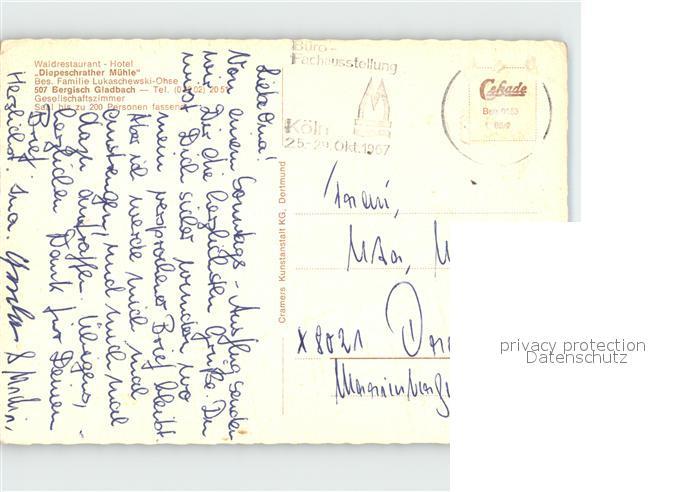 Waldrestaurant - Hotel
„Diepeschrather Mühle“
Bes. Familie Lukaschewski-Ohse
507 Bergisch Gladbach — Tel. (0 22 02) 20 59
Gesellschaftszimmer
Saal bis zu 200 Personen fassend
Liebe Oma!
Von einem Sonntags-Ausflug senden
wir Dir die herzlichsten Grüße. Du
wirst Dich sicher wundern, wo
mein versprochener Brief bleibt.
Aber ich werde mich mal
anstrengen, und mich mal
dazu aufraffen. Übrigens,
herzlichen Dank für Deinen
Brief.
Herzlichst
Büro-
Fachausstellung
Köln
25.-29. Okt. 1967
Cekade
Cramers Kunstanstalt KG, Dortmund
X 8021
privacy protection
Datenschutz